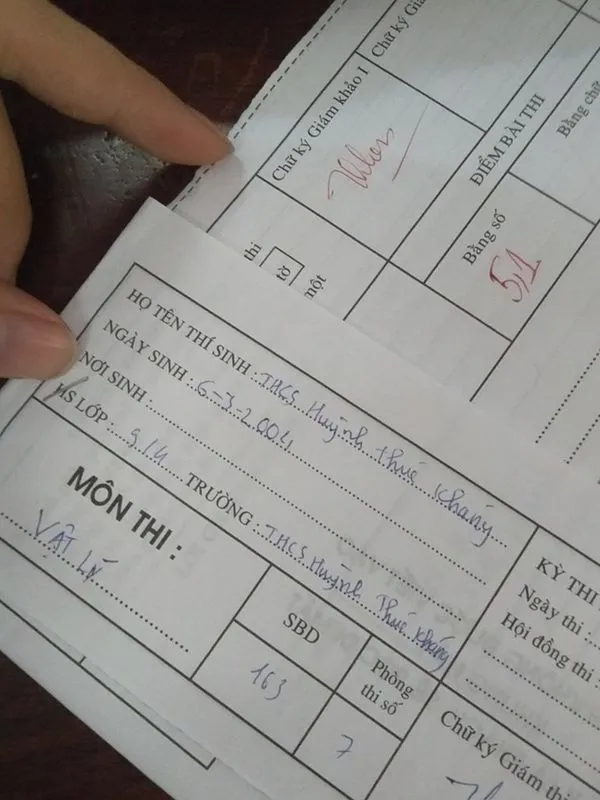 Chữ ký Giám khảo I
Chữ ký Giá
ĐIỂM BÀI THI
Bằng số
Bằng chữ
5,1
thi
tờ
một
HỌ TÊN THÍ SINH : THCS Huỳnh Thúc Kháng
NGÀY SINH : 6-3-2004
NƠI SINH :
HS LỚP : 9/4 TRƯỜNG : THCS Huỳnh Thúc Kháng
MÔN THI :
VẬT LÝ
SBD
163
Phòng
thi số
7
KỲ THI
Ngày thi :
Hội đồng thi :
Chữ ký Giám thị